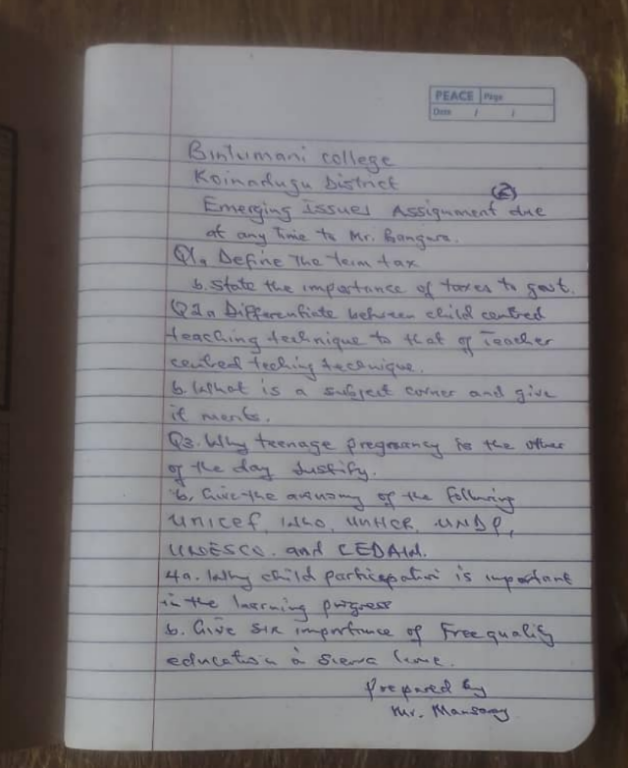 PEACE Page
Date / /
Bintumani college
Koinadugu District
(2)
Emerging Issues Assignment due
at any Time to Mr. Bangura.
Q1a Define the term tax
b. State the importance of taxes to govt.
Q2a Differentiate between child centred
teaching technique to that of Teacher
centred teching technique.
b. What is a subject corner and give
it merits.
Q3. Why teenage pregnancy is the other
of the day Justify.
b, Give the of the following
Unicef, WHO, UNHCR, UNDP,
UNESCO. and CEDAW.
4a. Why child participation is important
in the learning progress
b. Give six importance of Free quality
education in Sierra Leone.
Prepared by
Mr. Mansaray